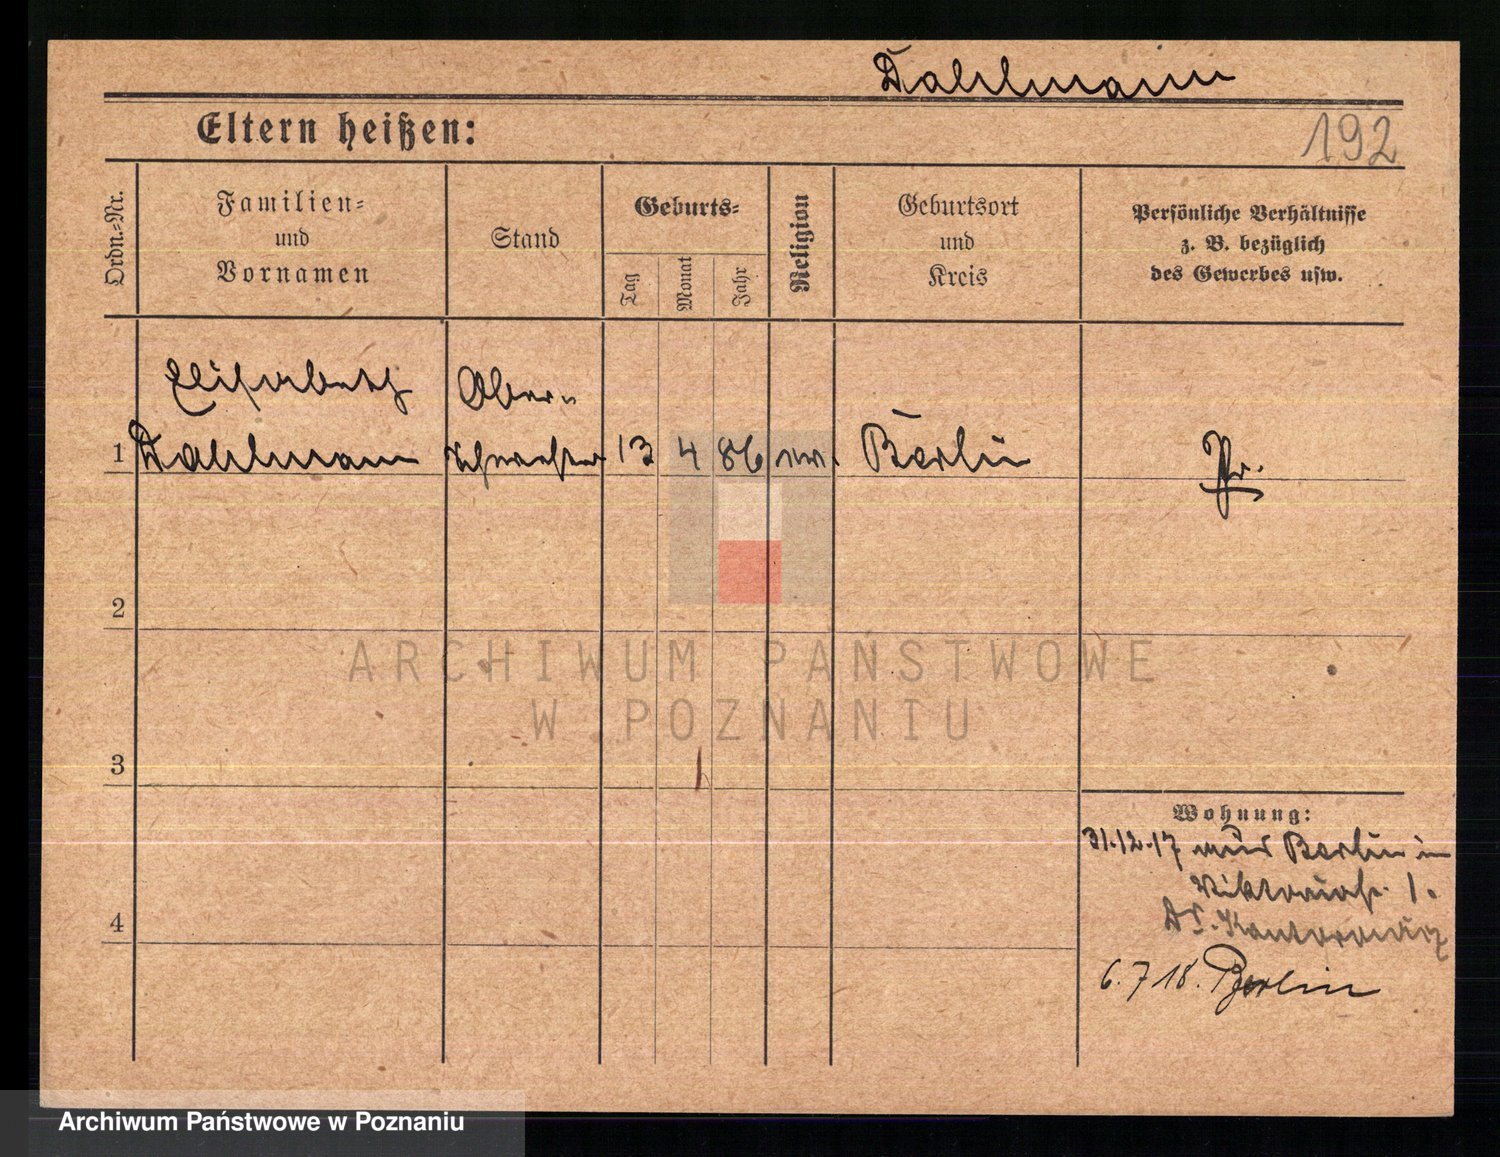 Dahlmann
Eltern heißen:
192
Ordn.-Nr.
Familien-
und
Vornamen
Stand
Geburts-
Tag
Monat
Jahr
Religion
Geburtsort
und
Kreis
Persönliche Verhältnisse
z. B. bezüglich
des Gewerbes usw.
Elisabeth
Ober-
1 Dahlmann schwester 13 4 86 ev. Berlin Pr.
2
3
4
Wohnung:
31.12.17 Berlin
Viktoriastr. 1.
Dr. Kantorowicz
6.7 18. Berlin
ARCHIWUM PAŃSTWOWE
W POZNANIU
Archiwum Państwowe w Poznaniu